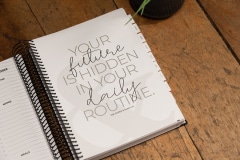 YOUR
future
IS HIDDEN
IN YOUR
daily
ROUTINE.